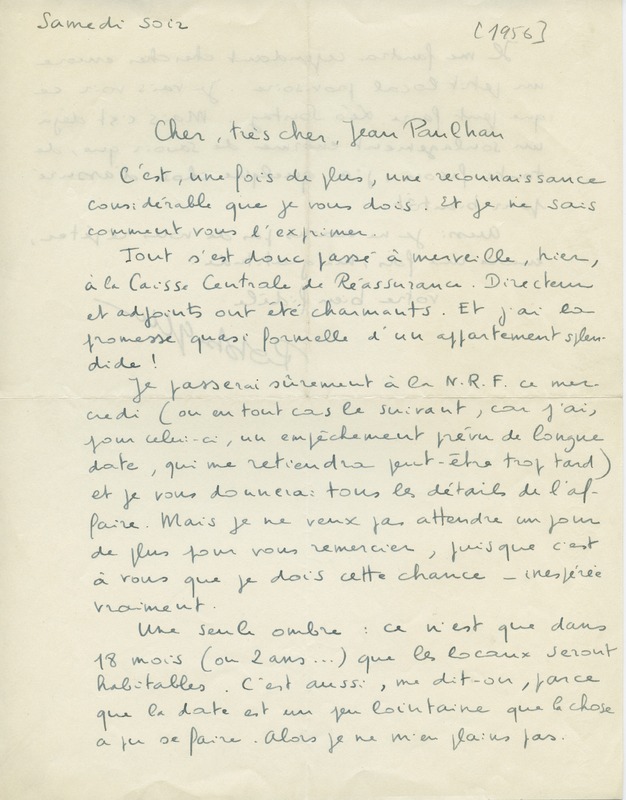 Samedi soir
[1956]
Cher, très cher, Jean Paulhan
C'est, une fois de plus, une reconnaissance
considérable que je vous dois. Et je ne sais
comment vous l'exprimer.
Tout s'est donc passé à merveille, hier,
à la Caisse Centrale de Réassurance. Directeur
et adjoints ont été charmants. Et j'ai la
promesse quasi formelle d'un appartement splen-
dide !
Je passerai sûrement à la N.R.F. ce mer-
credi (ou en tout cas le suivant, car j'ai,
pour celui-ci, un empêchement prévu de longue
date, qui me retiendra peut-être trop tard)
et je vous donnerai tous les détails de l'af-
faire. Mais je ne veux pas attendre un jour
de plus pour vous remercier, puisque c'est
à vous que je dois cette chance – inespérée
vraiment.
Une seule ombre : ce n'est que dans
18 mois (ou 2 ans...) que les locaux seront
habitables. C'est aussi, me dit-on, parce
que la date est un peu lointaine que la chose
a pu se faire. Alors je ne m'en plains pas.